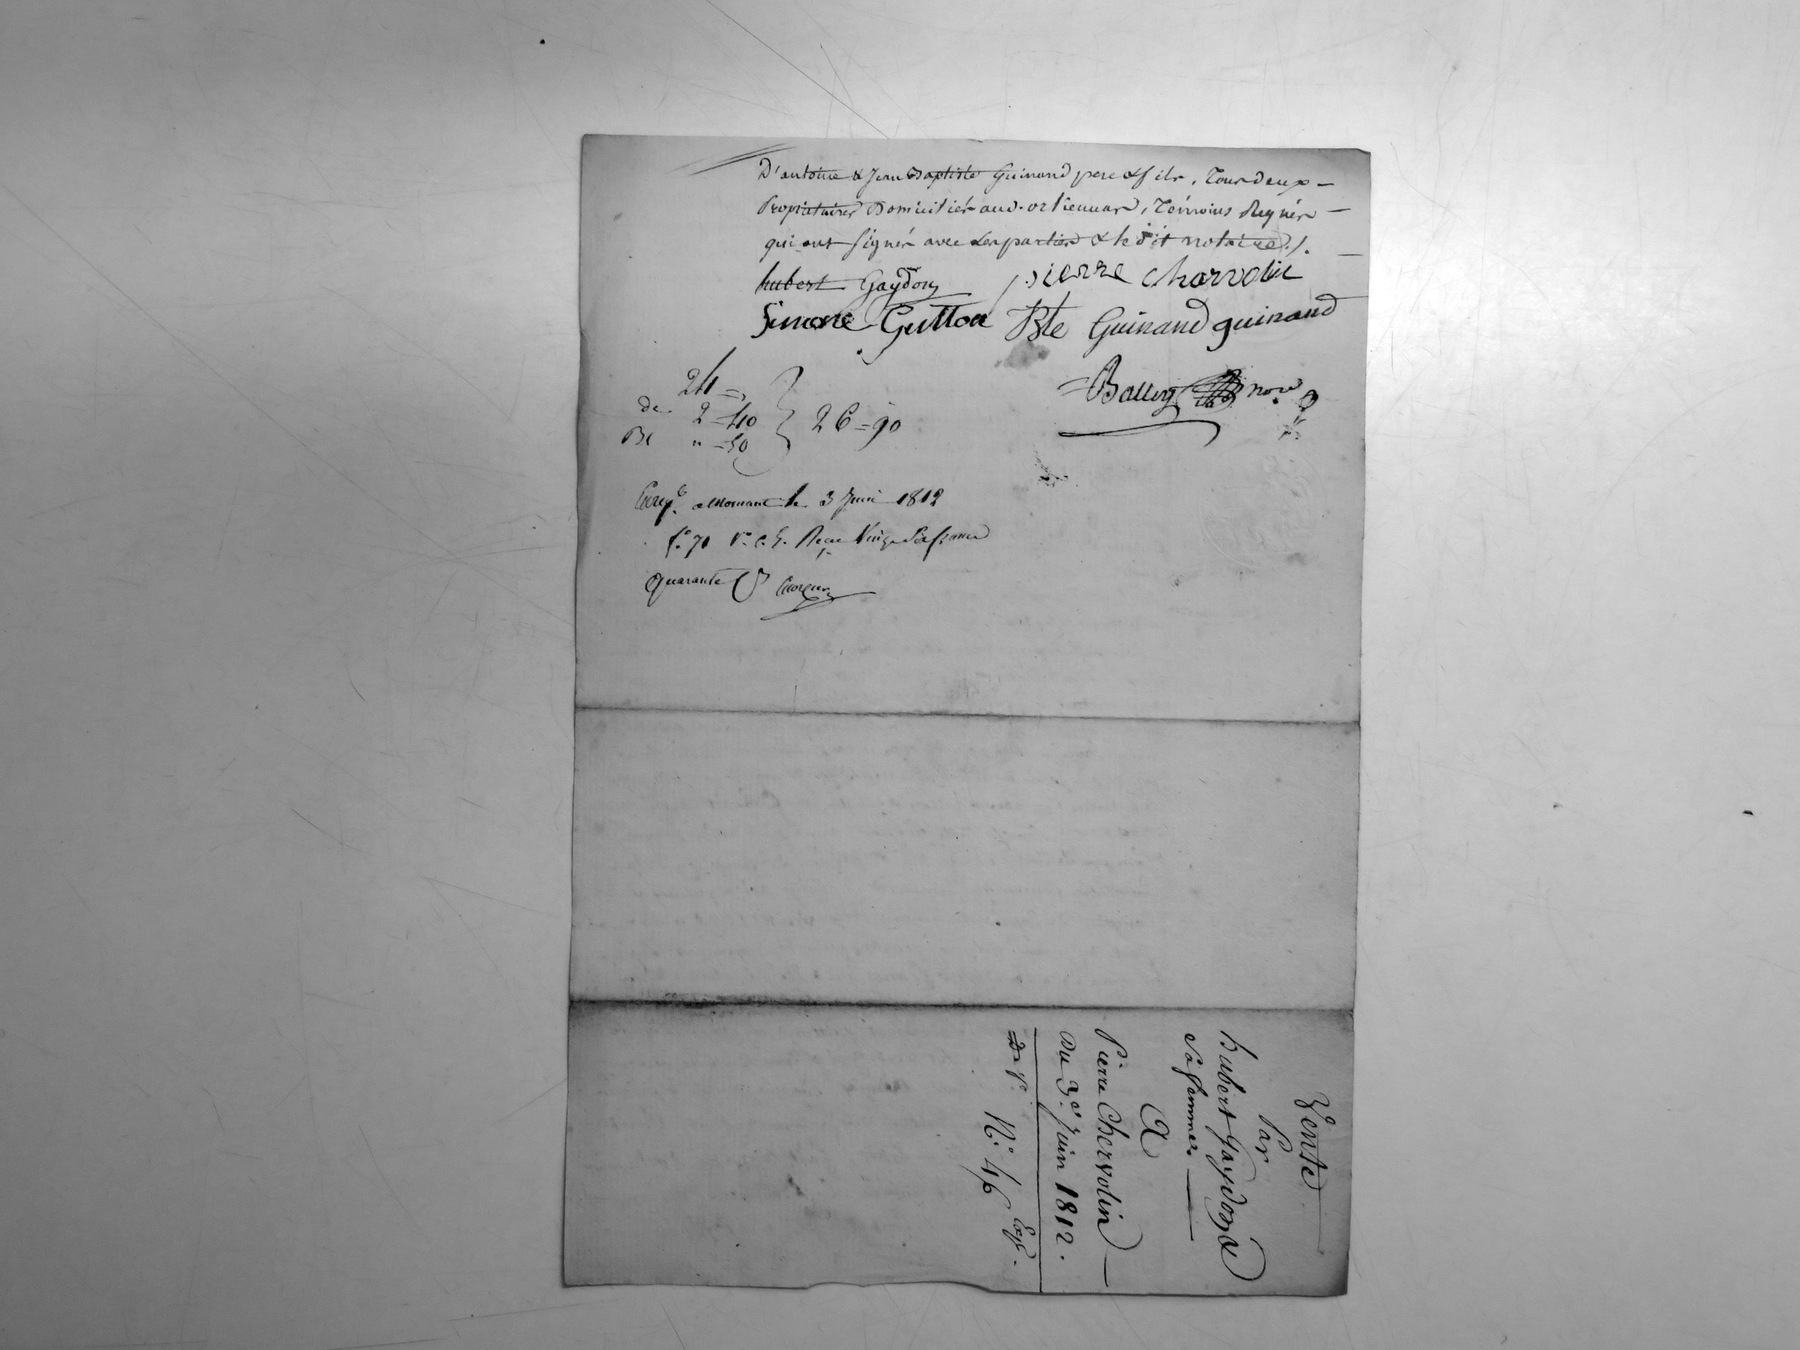 D'antoine & Jean Baptiste Guinand pere & fils, Tous deux
Propriétaires Domiciliés aud. Témoins Requis
qui ont signés avec les parties & le dit notaire ./.
hubert Gaydon pierre charvolin
Simone Gutton JBte Guinand guinand
Balley nore
24 =
de 2 = 40
26 = 90
" = 50
Enregé. a le 3 Juin 1812
fo. 70 Vo. c. 5. Recu Vingt Six francs
quarante Cs
Vente
Par
hubert Gaydon &
Sa femme
A
Pierre Chervolin
Du 3e. Juin 1812.
No. 46 Exp.